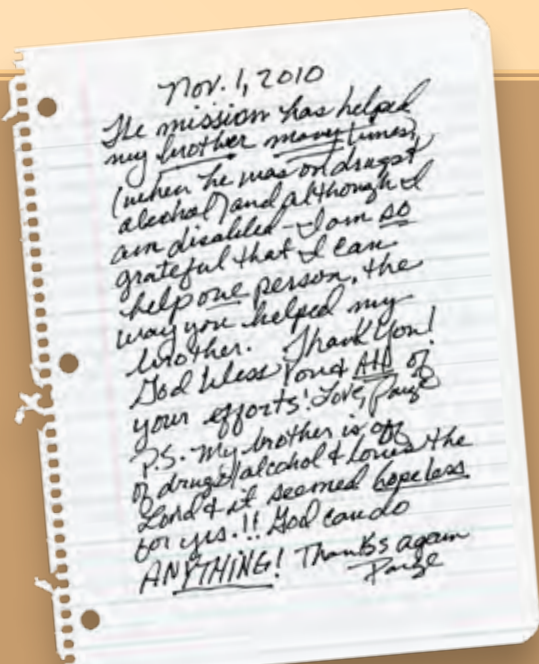 Nov. 1, 2010
The mission has helped
my brother many times,
(when he was on drugs &
alcohol) and although I
am disabled - I am so
grateful that I can
help one person, the
way you helped my
brother. Thank You!
God bless You & All of
your efforts! Love, Paige
P.S. My brother is off
of drugs/alcohol & loves the
Lord & it seemed hopeless
for yrs.!! God can do
ANYTHING! Thanks again
Paige